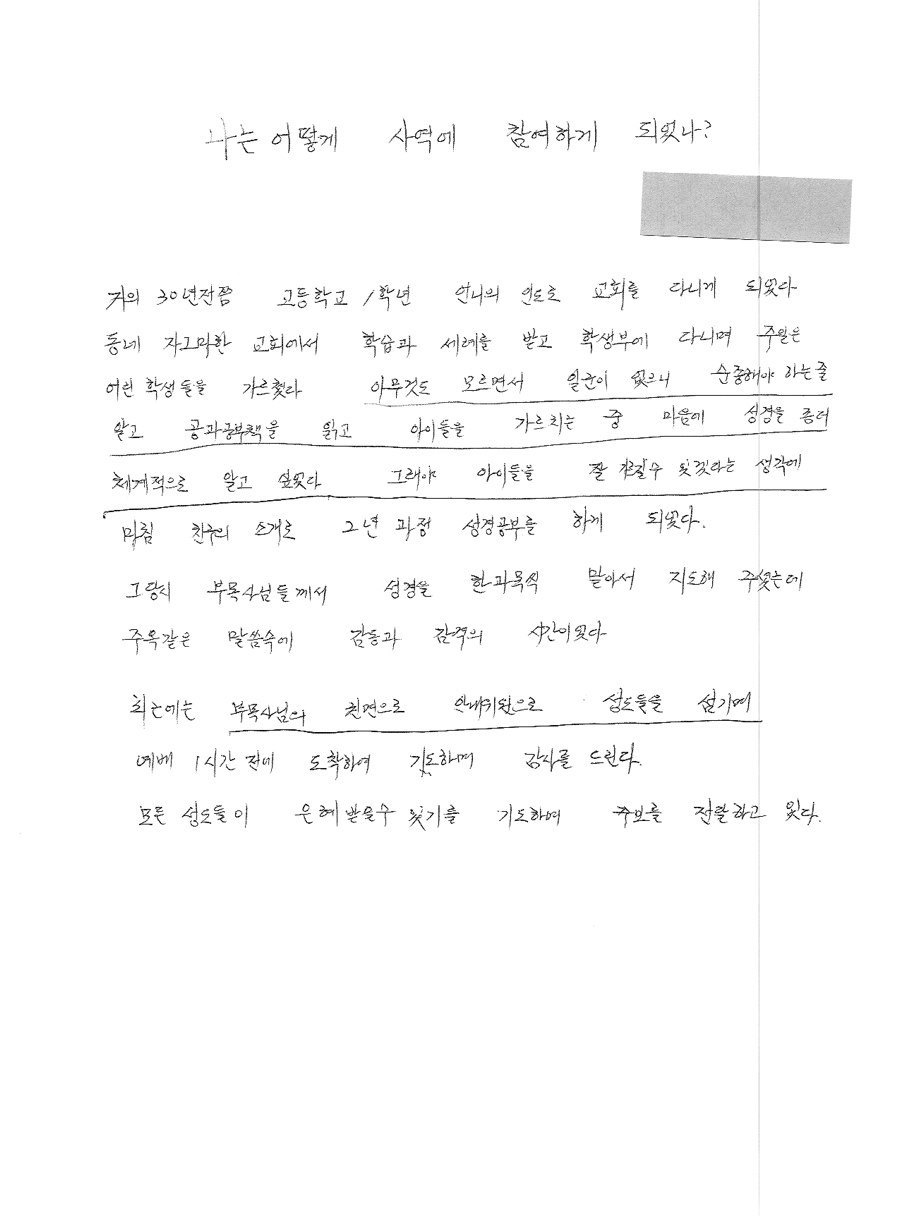 나는 어떻게 사역에 참여하게 되었나?
거의 30년전쯤 고등학교 1학년 언니의 인도로 교회를 다니게 되었다
동네 자그마한 교회에서 학습과 세례를 받고 학생부에 다니며 주일은
어린 학생들을 가르쳤다 아무것도 모르면서 일군이 없으니 순종해야 하는줄
알고 공과공부책을 읽고 아이들을 가르치는 중 마음에 성경을 좀더
체계적으로 알고 싶었다 그래야 아이들을 잘 가르칠수 있겠다는 생각에
마침 친구의 소개로 2년 과정 성경공부를 하게 되었다.
그당시 부목사님들께서 성경을 한과목씩 맡아서 지도해 주셨는데
주옥같은 말씀속에 감동과 감격의 시간이었다
최근에는 부목사님의 권면으로 안내위원으로 성도들을 섬기며
예배 1시간 전에 도착하여 기도하며 감사를 드린다.
모든 성도들이 은혜받을수 있기를 기도하며 주보를 전달하고 있다.